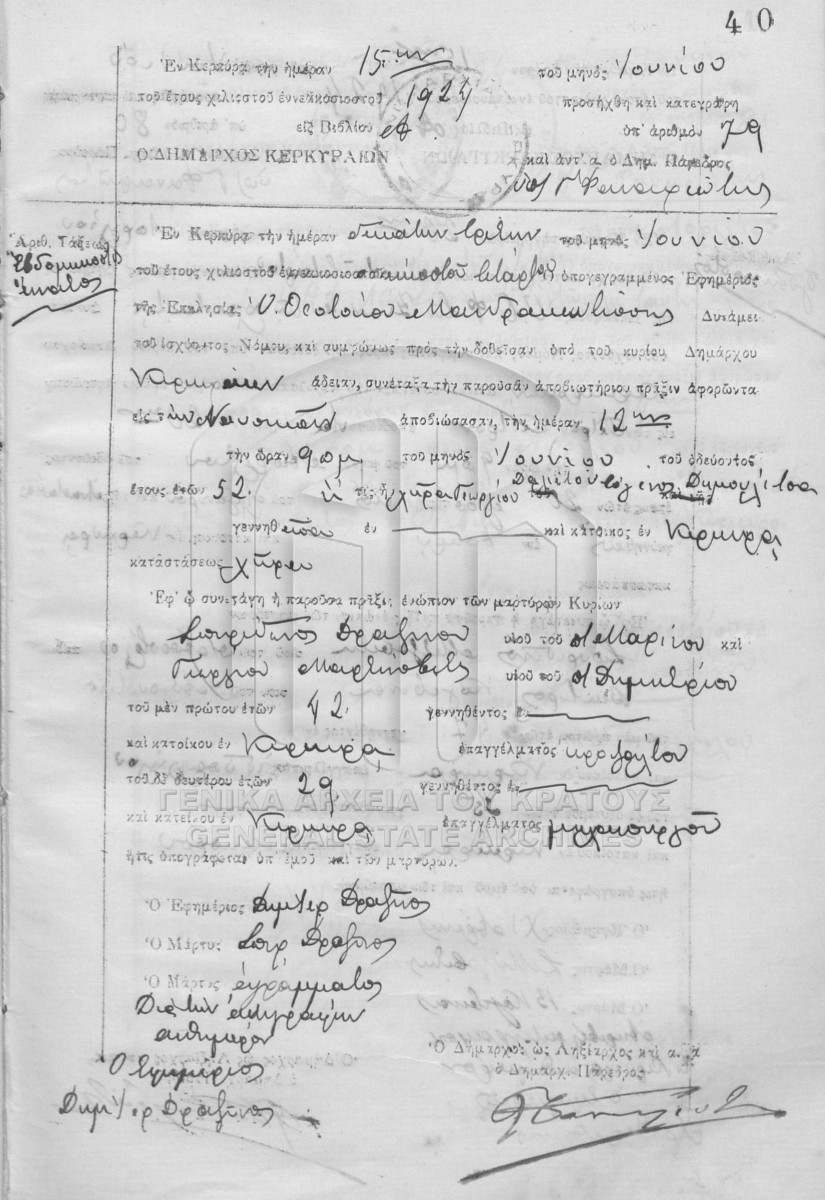 40
Ἐν Κερκύρᾳ τὴν ἡμέραν 15ην τοῦ μηνὸς Ἰουνίου
τοῦ ἔτους χιλιοστοῦ ἐννεακοσιοστοῦ 1924 προσήχθη καὶ κατεγράφη
εἰς Βιβλίον ὑπ' ἀριθμὸν 79
Ο ΔΗΜΑΡΧΟΣ ΚΕΡΚΥΡΑΙΩΝ καὶ ἀντ' α. ὁ Δημ. Πάρεδρος
Ἀριθ. Τάξεως
Ἑβδομηκοστὸς
ἔνατος
Ἐν Κερκύρᾳ τὴν ἡμέραν δεκάτην τρίτην τοῦ μηνὸς Ἰουνίου
τοῦ ἔτους χιλιοστοῦ ἐννεακοσιοστοῦ εἰκοστοῦ τετάρτου ὁ ὑπογεγραμμένος Ἐφημέριος
τῆς Ἐκκλησίας Υ. Θεοτόκου Μανδρακιωτίσσης Δυνάμει
τοῦ ἰσχύοντος Νόμου, καὶ συμφώνως πρὸς τὴν δοθεῖσαν ὑπὸ τοῦ κυρίου Δημάρχου
Κερκυραίων ἄδειαν, συνέταξα τὴν παροῦσαν ἀποβιωτήριον πρᾶξιν ἀφορῶντα
εἰς τὴν ἀποβιώσασαν, τὴν ἡμέραν 12ην
τὴν ὥραν 9 πμ τοῦ μηνὸς Ἰουνίου τοῦ ὁδεύοντος
ἔτους ἐτῶν 52. ἥτις ἦ χήρα Γεωργίου τὸ γένος Δημουλίτσα
γεννηθεῖσα ἐν καὶ κάτοικος ἐν Κέρκυρᾳ
καταστάσεως χήρα
Ἐφ' ᾧ συνετάγη ἡ παροῦσα πρᾶξις ἐνώπιον τῶν μαρτύρων Κυρίων
Σπυρίδωνος Δραζίνου υἱοῦ τοῦ Μαρίνου καὶ
Γεωργίου υἱοῦ τοῦ Δημητρίου
τοῦ μὲν πρώτου ἐτῶν 42. γεννηθέντος ἐν
καὶ κατοίκου ἐν Κέρκυρᾳ ἐπαγγέλματος
τοῦ δὲ δευτέρου ἐτῶν 29 γεννηθέντος ἐν
ΓΕΝΙΚΑ ΑΡΧΕΙΑ ΤΟΥ ΚΡΑΤΟΥΣ
καὶ κατοίκου ἐν Κέρκυρᾳ ἐπαγγέλματος
GENERAL STATE ARCHIVES
ἥτις ὑπογράφεται ὑπ' ἐμοῦ καὶ τῶν μαρτύρων.
Ὁ Ἐφημέριος Δημ Ἱερ Δραζίνος
Ὁ Μάρτυς Σπυρ Δραζίνος
Ὁ Μάρτυς ἀγράμματος
Διὰ τὴν ἀντιγραφὴν
αὐθημερόν
Ὁ Ἐφημέριος
Δημ Ἱερ Δραζίνος
Ὁ Δήμαρχος ὡς Ληξίαρχος καὶ α. α
ὁ Δημαρχ. Πάρεδρος